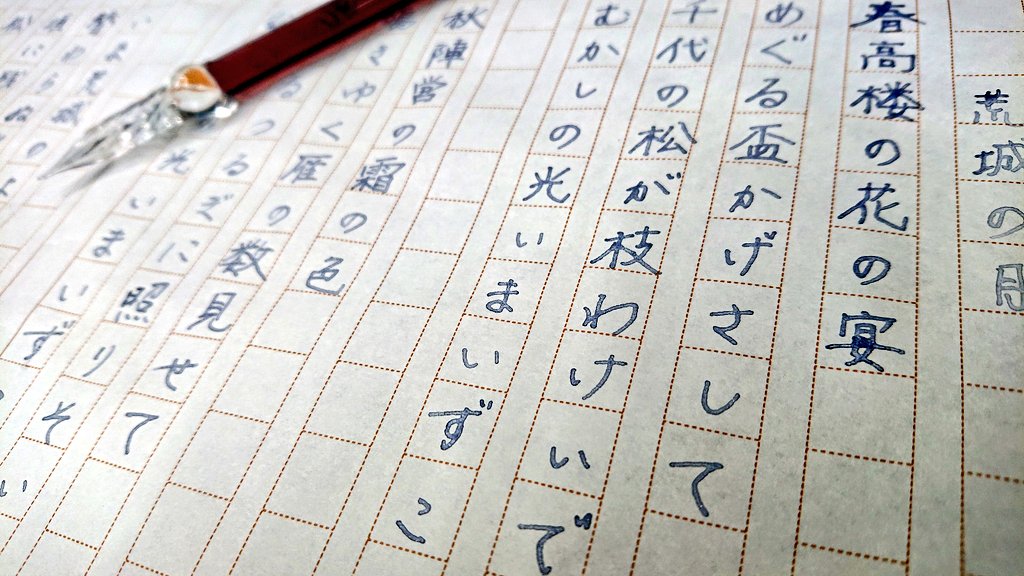 荒城の月
春高楼の花の宴
めぐる盃かげさして
千代の松が枝わけいで
むかしの光いまいずこ
秋陣営の霜の色
きゆく雁の数見せて
るつるぎに照りそい
光いまいず
いま荒城